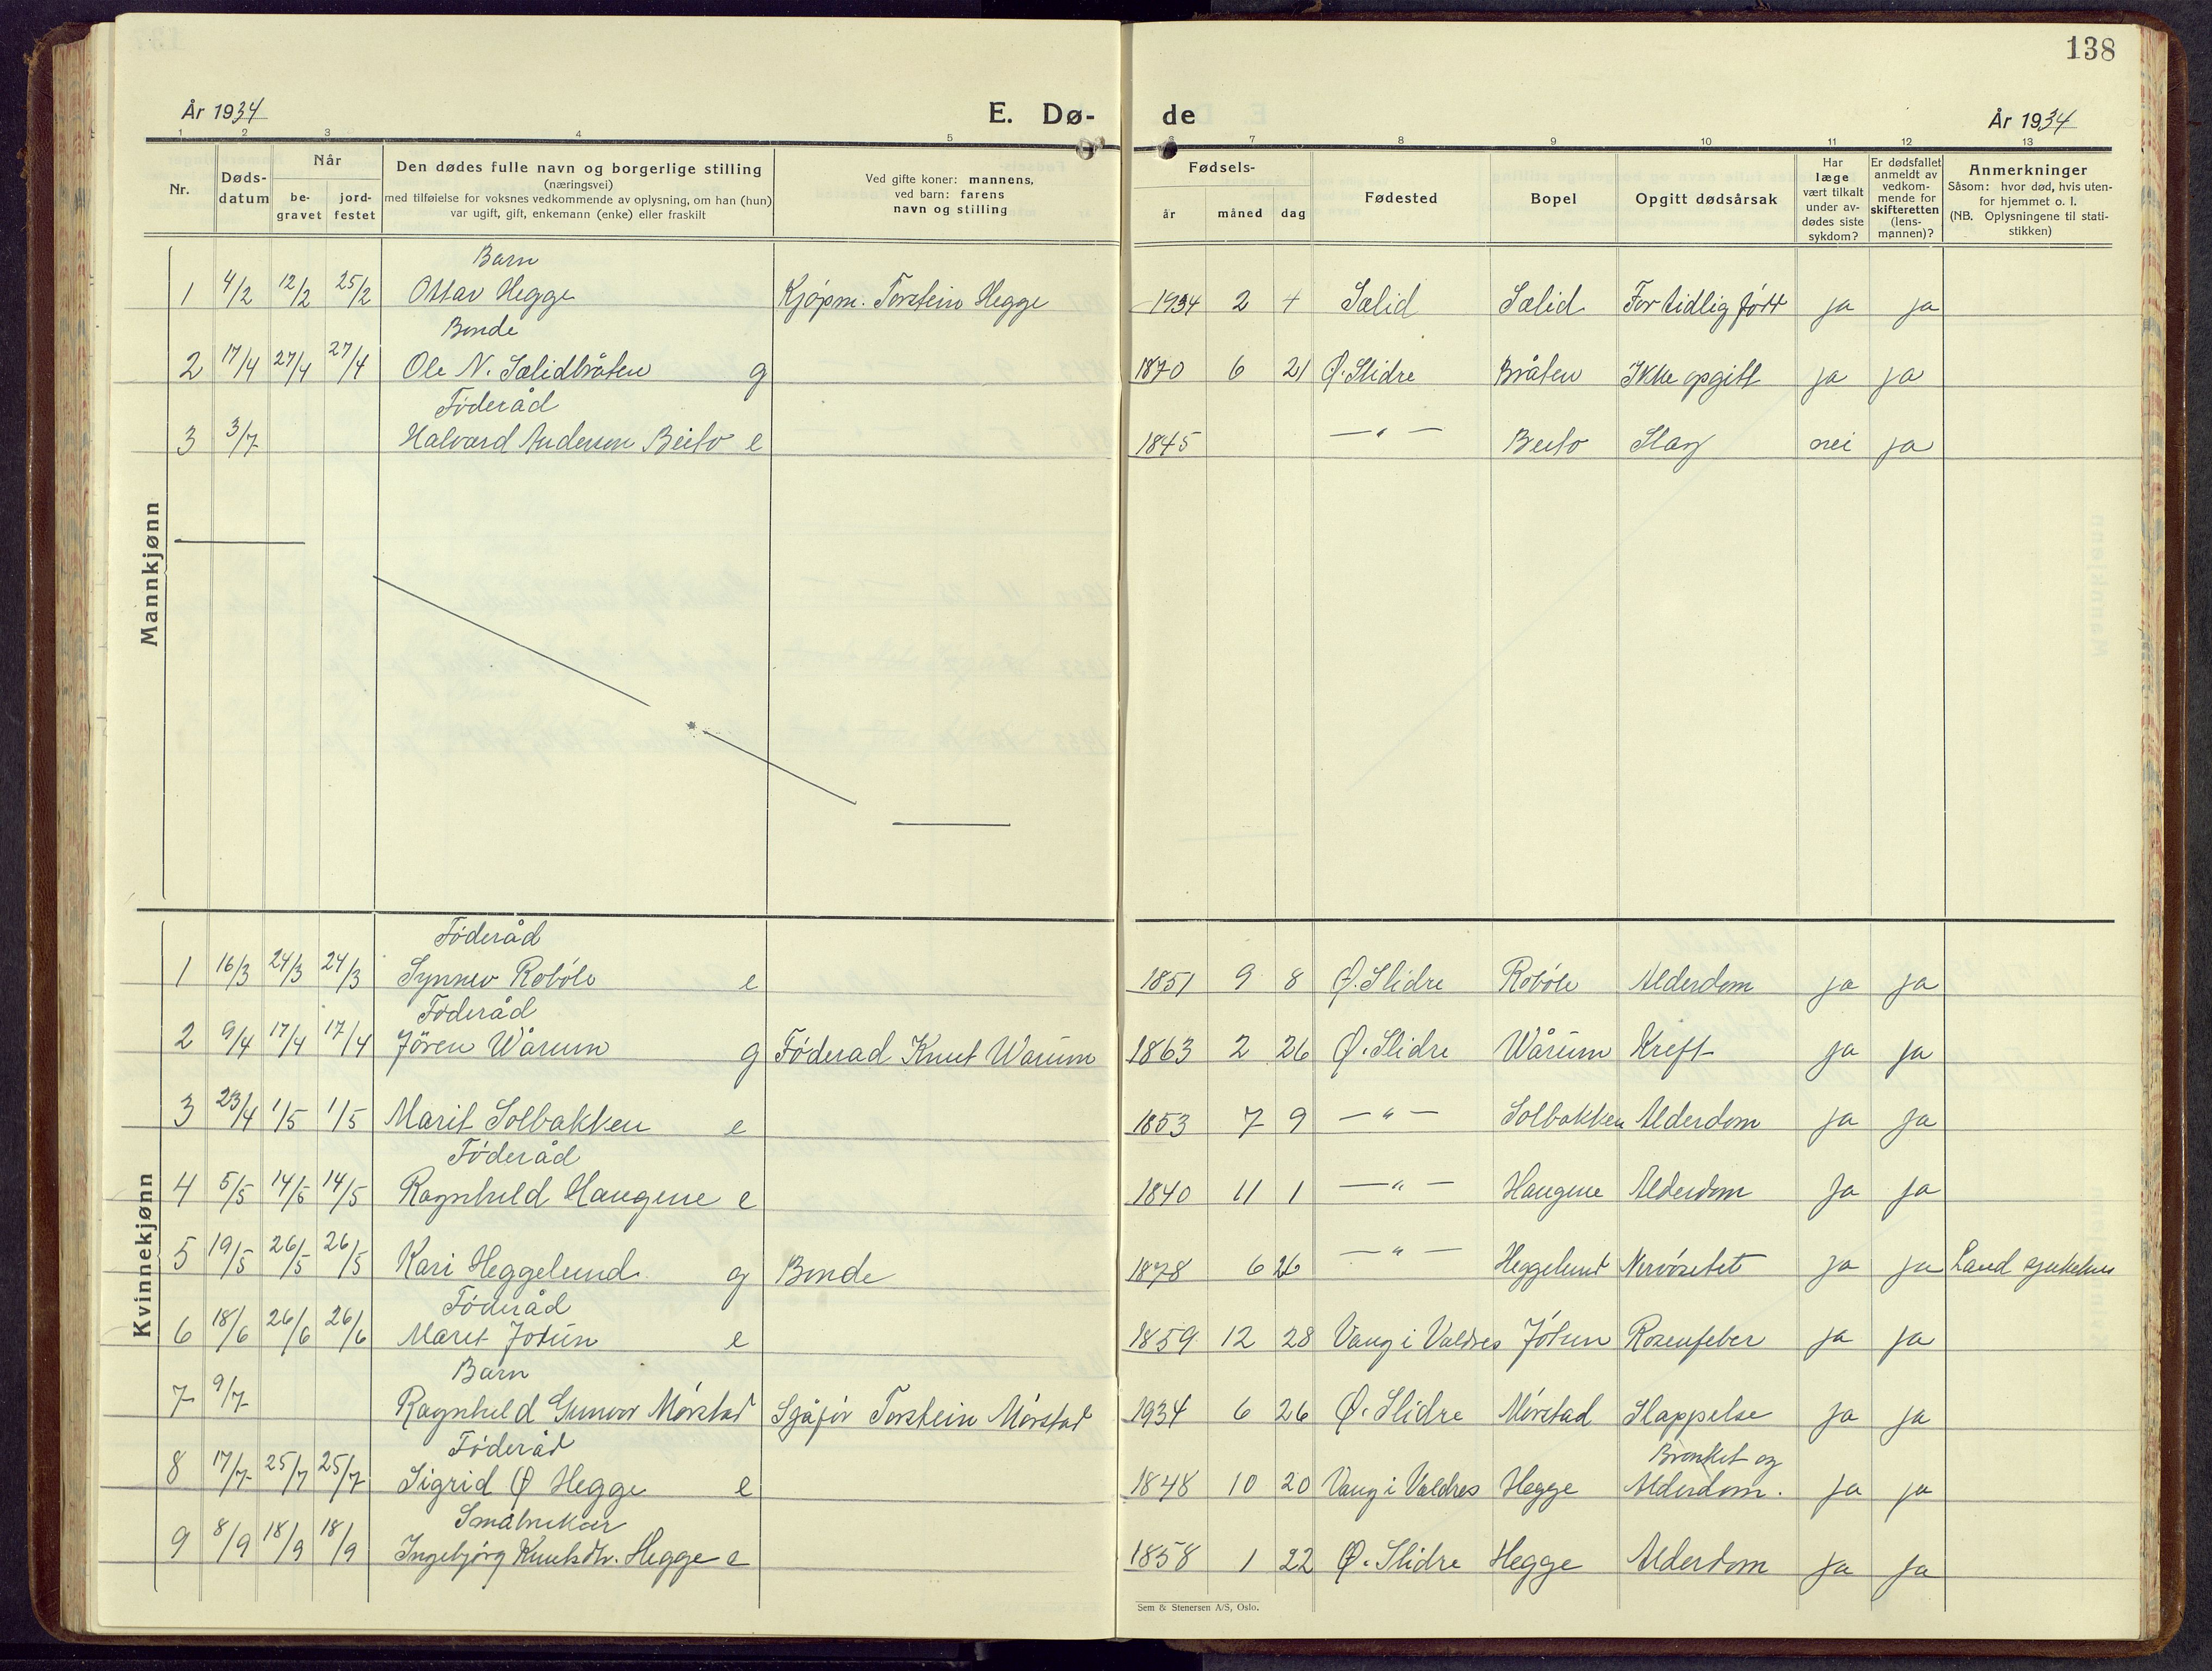 138
År 1934 E. Dø- de År 1934
1 2 3 4 5 6 7 8 9 10 11 12 13
Nr. Døds-datum Når be-gravet jord-festet Den dødes fulle navn og borgerlige stilling (næringsvei) med tilføielse for voksnes vedkommende av oplysning, om han (hun) var ugift, gift, enkemann (enke) eller fraskilt Ved gifte koner: mannens, ved barn: farens navn og stilling Fødsels- år måned dag Fødested Bopel Opgitt dødsårsak Har læge vært tilkalt under av-dødes siste sykdom? Er dødsfallet anmeldt av vedkom-mende for skifteretten (lens-mannen)? Anmerkninger Såsom: hvor død, hvis uten-for hjemmet o. l. (NB. Oplysningene til stati-stikken)
Mannkjønn
Barn
1 4/2 12/2 25/2 Ottar Hegge Kjøpm. Torstein Hegge 1934 2 4 Sælid Sælid For tidlig født ja ja
Bonde
2 17/4 27/4 27/4 Ole N. Sælidbråten g 1870 6 21 Ø. Slidre Bråten Ikke opgitt ja ja
Føderåd
3 3/7 Halvard Andersen Beito e 1845 — " — Beito Slag nei ja
Kvinnekjønn
Føderåd
1 16/3 24/3 24/3 Synnev Robøle e 1851 9 8 Ø. Slidre Robøle Alderdom ja ja
Føderåd
2 9/4 17/4 17/4 Jøren Wårum g Føderad Knut Warum 1863 2 26 Ø. Slidre Wårum Kreft ja ja
3 23/4 1/5 1/5 Marit Solbakken e 1853 7 9 — " — Solbakken Alderdom ja ja
Føderåd
4 5/5 14/5 14/5 Ragnhild Haugene e 1840 11 1 — " — Haugene Alderdom Ja ja
5 19/5 26/5 26/5 Kari Heggelund g Bonde 1878 6 26 — " — Heggelund Nervøsitet ja ja Land sjukehus
Føderåd
6 18/6 26/6 26/6 Marit Jotun e 1859 12 28 Vang i Valdres Jotun Rosenfeber ja ja
Barn
7 9/7 Ragnhild Gunvor Mørstad Sjåfør Torstein Mørstad 1934 6 26 Ø. Slidre Mørstad Slappelse ja ja
Føderåd
8 17/7 25/7 25/7 Sigrid Ø Hegge e 1848 10 20 Vang i Valdres Hegge Bronkit og Alderdom. ja ja
Småbrukar
9 8/9 18/9 18/9 Ingebjørg Knutsdtr. Hegge e 1858 1 22 Ø. Slidre Hegge Alderdom ja ja
Sem & Stenersen A/S, Oslo.